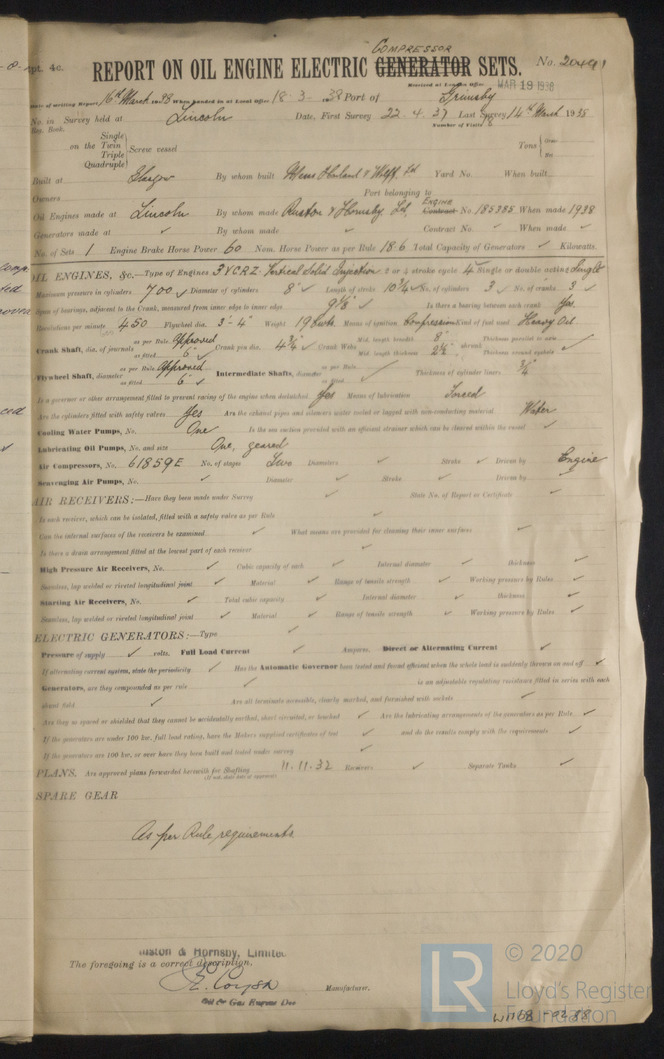 COMPRESSOR
Rpt. 4c.
REPORT ON OIL ENGINE ELECTRIC GENERATOR SETS.
No. 20491
Received at London Office MAR 19 1938
Date of writing Report 16th March 1938 When handed in at Local Office 18-3-1938 Port of Grimsby
No. in Survey held at Lincoln Date, First Survey 22-4-37 Last Survey 14th March 1938
Reg. Book. Number of Visits
Single
on the Twin Screw vessel Tons Gross
Triple Net
Quadruple
Built at Glasgow By whom built Mess Harland & Wolff Ltd Yard No. When built
Owners Port belonging to
Oil Engines made at Lincoln By whom made Ruston & Hornsby Ltd, Engine Contract No. 185785 When made 1938
Generators made at ✓ By whom made ✓ Contract No. ✓ When made ✓
No. of Sets 1 Engine Brake Horse Power 60 Nom. Horse Power as per Rule 18.6 Total Capacity of Generators ✓ Kilowatts.
OIL ENGINES, &c.—Type of Engines 3VCRZ Vertical Solid Injection 2 or 4 stroke cycle 4 Single or double acting Single
Maximum pressure in cylinders 700 ✓ Diameter of cylinders 8" ✓ Length of stroke 10¾" ✓ No. of cylinders 3 ✓ No. of cranks 3 ✓
Span of bearings, adjacent to the Crank, measured from inner edge to inner edge ✓ Is there a bearing between each crank Yes
Revolutions per minute 450 Flywheel dia. 3'-4" Weight 19 Cwts. Means of ignition Compression Kind of fuel used Heavy Oil
Crank Shaft, dia. of journals as per Rule Approved as fitted 6" ✓ Crank pin dia. 4¾" ✓ Crank Webs Mid. length breadth 8" Mid. length thickness 2½" shrunk Thickness parallel to axis Thickness around eyehole ✓
Flywheel Shaft, diameter as per Rule Approved as fitted 6" ✓ Intermediate Shafts, diameter as per Rule as fitted ✓ Thickness of cylinder liners ¾"
Is a governor or other arrangement fitted to prevent racing of the engine when declutched Yes Means of lubrication Forced
Are the cylinders fitted with safety valves Yes Are the exhaust pipes and silencers water cooled or lagged with non-conducting material Water
Cooling Water Pumps, No. One Is the sea suction provided with an efficient strainer which can be cleared within the vessel ✓
Lubricating Oil Pumps, No. and size One, geared
Air Compressors, No. 61859E No. of stages Two Diameters ✓ Stroke ✓ Driven by Engine
Scavenging Air Pumps, No. ✓ Diameter ✓ Stroke ✓ Driven by ✓
AIR RECEIVERS:—Have they been made under Survey ✓ State No. of Report or Certificate ✓
Is each receiver, which can be isolated, fitted with a safety valve as per Rule ✓
Can the internal surfaces of the receivers be examined ✓ What means are provided for cleaning their inner surfaces ✓
Is there a drain arrangement fitted at the lowest part of each receiver ✓
High Pressure Air Receivers, No. ✓ Cubic capacity of each ✓ Internal diameter ✓ thickness ✓
Seamless, lap welded or riveted longitudinal joint ✓ Material ✓ Range of tensile strength ✓ Working pressure by Rules ✓
Starting Air Receivers, No. ✓ Total cubic capacity ✓ Internal diameter ✓ thickness ✓
Seamless, lap welded or riveted longitudinal joint ✓ Material ✓ Range of tensile strength ✓ Working pressure by Rules ✓
ELECTRIC GENERATORS:—Type ✓
Pressure of supply ✓ volts. Full Load Current ✓ Amperes. Direct or Alternating Current ✓
If alternating current system, state the periodicity ✓ Has the Automatic Governor been tested and found efficient when the whole load is suddenly thrown on and off ✓
Generators, are they compounded as per rule ✓ is an adjustable regulating resistance fitted in series with each
shunt field ✓ Are all terminals accessible, clearly marked, and furnished with sockets ✓
Are they so spaced or shielded that they cannot be accidentally earthed, short circuited, or touched ✓ Are the lubricating arrangements of the generators as per Rule ✓
If the generators are under 100 kw. full load rating, have the Makers supplied certificates of test ✓ and do the results comply with the requirements ✓
If the generators are 100 kw. or over have they been built and tested under survey ✓
PLANS. Are approved plans forwarded herewith for Shafting 11.11.32 Receivers ✓ Separate Tanks ✓
(If not, state date of approval)
SPARE GEAR
As per Rule requirements
Ruston & Hornsby, Limited
The foregoing is a correct description,
Manufacturer.
Oil & Gas Engine Dec
© 2020
LR
Lloyd's Register
Foundation